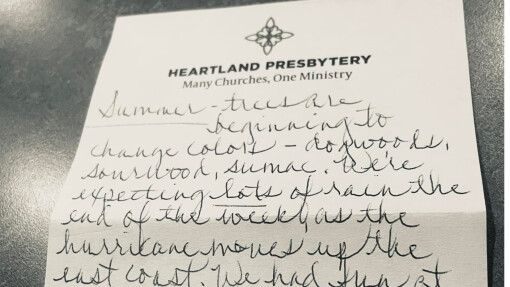 HEARTLAND PRESBYTERY
Many Churches, One Ministry
Summer - trees are
beginning to
change colors - dogwoods,
sourwood, sumac. We're
expecting lots of rain the
end of the week, as the
hurricane moves up the
east coast. We had fun at